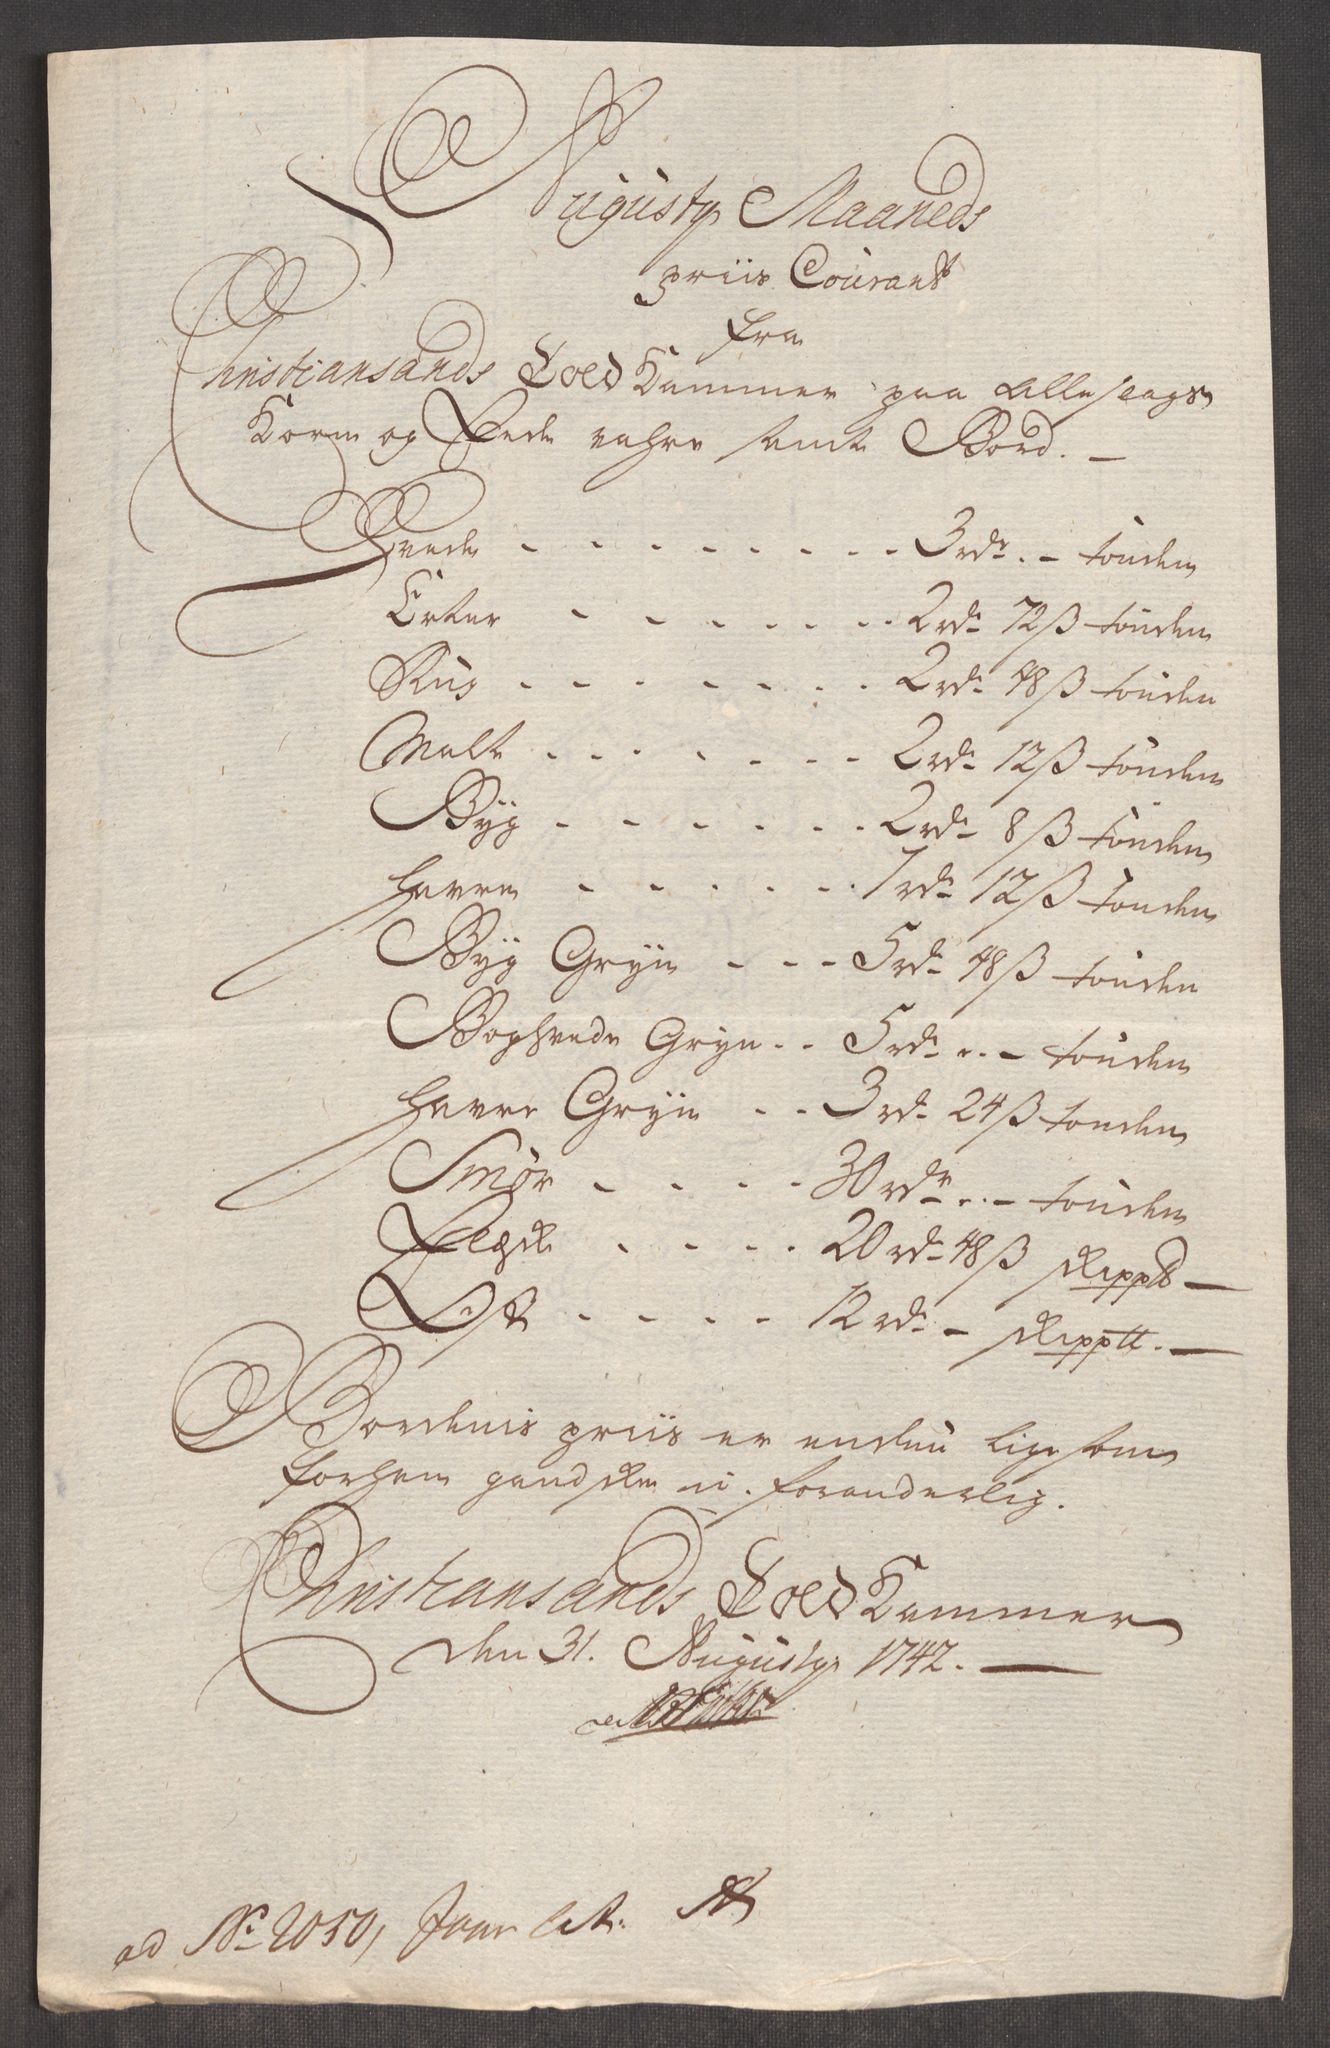 Augusty Maaneds
priis Courant
fra
Christiansands Told Kammer paa alle slags
Korn og Fede vahre samt Bord. -
Hvede - - - - - - - - 3 rdr. - tønden
Erter - - - - - - - 2 rdr 72 ß tønden
Rug - - - - - - - 2 rdr 48 ß tønden
Malt - - - - - - - 2 rdr 12 ß tønden
Byg - - - - - - 2 rdr 8 ß tønden
Havre - - - - - - 1 rdr 12 ß tønden
Byg Gryn - - - 5 rdr 48 ß tønden
Boghvede Gryn - - 5 rdr .. - tønden
Havre Gryn - - 3 rdr 24 ß tønden
Smør - - - - 30 rdr .. - tønden
Flesk - - - - 20 rdr 48 ß skippd -
Ost - - - - 12 rdr - skippd. -
Bordenis priis er endnu lige som
forhen gandske u-foranderlig.
Christiansands Told Kammer
den 31. Augusty 1742. -
ad No 2050, Faar Lit.